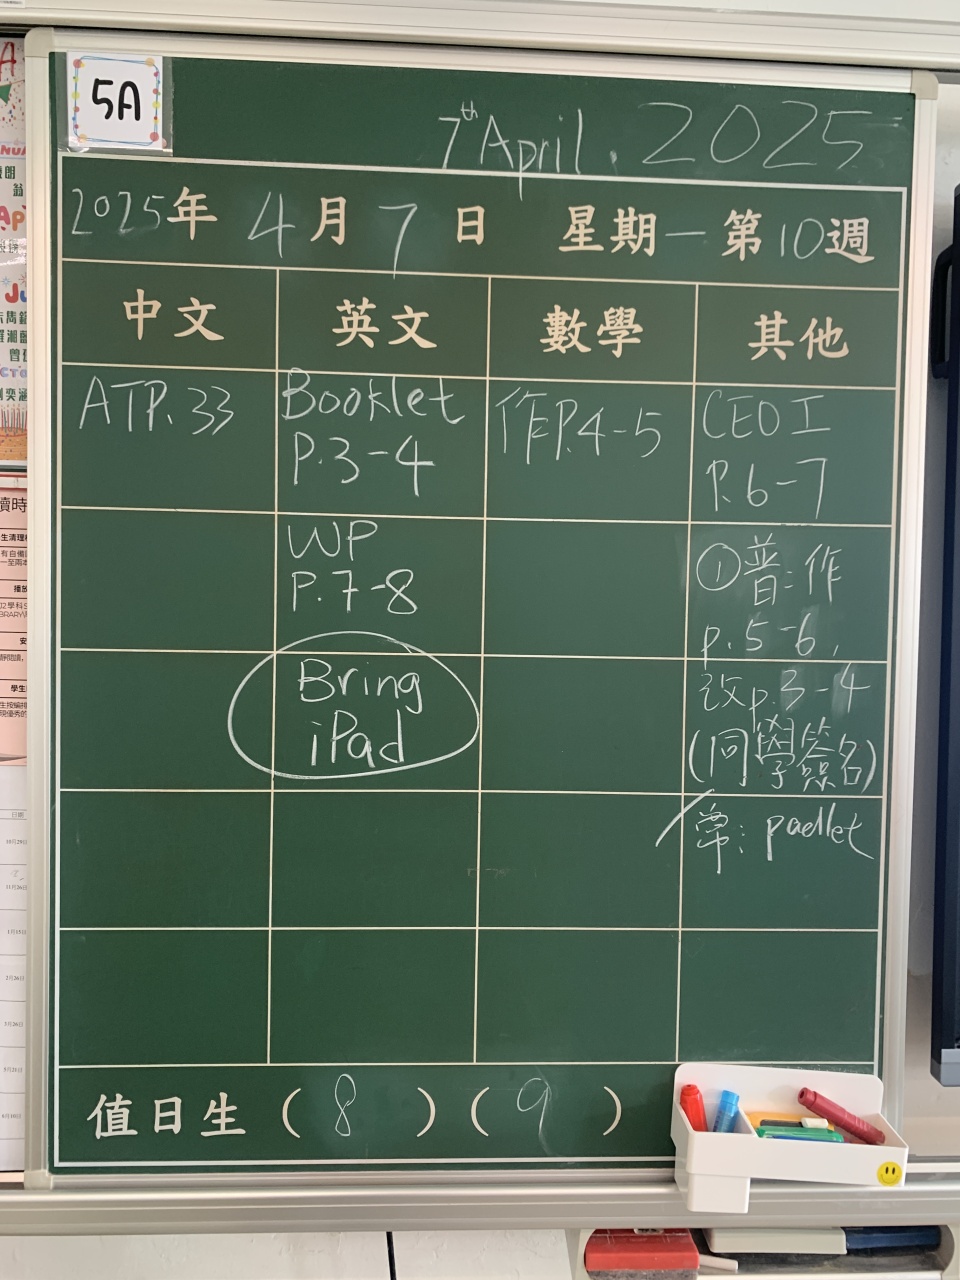 5A
7th April. 2025
2025年 4月7日 星期一 第10週
中文 英文 數學 其他
ATP.33
Booklet
P.3-4
作P.4-5
CEO工
P.6-7
WP
P.7-8
①普:作
p.5-6,
改p.3-4
(同學簽名)
Bring
iPad
常: padlet
值日生 ( 8 ) ( 9 )